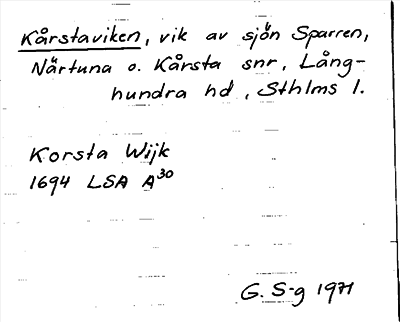 Kårstaviken, vik av sjön Sparren,
Närtuna o. Kårsta snr, Lång-
hundra hd, Sthlms l.
Korsta Wijk
1694 LSA A30
G. S-g 1971